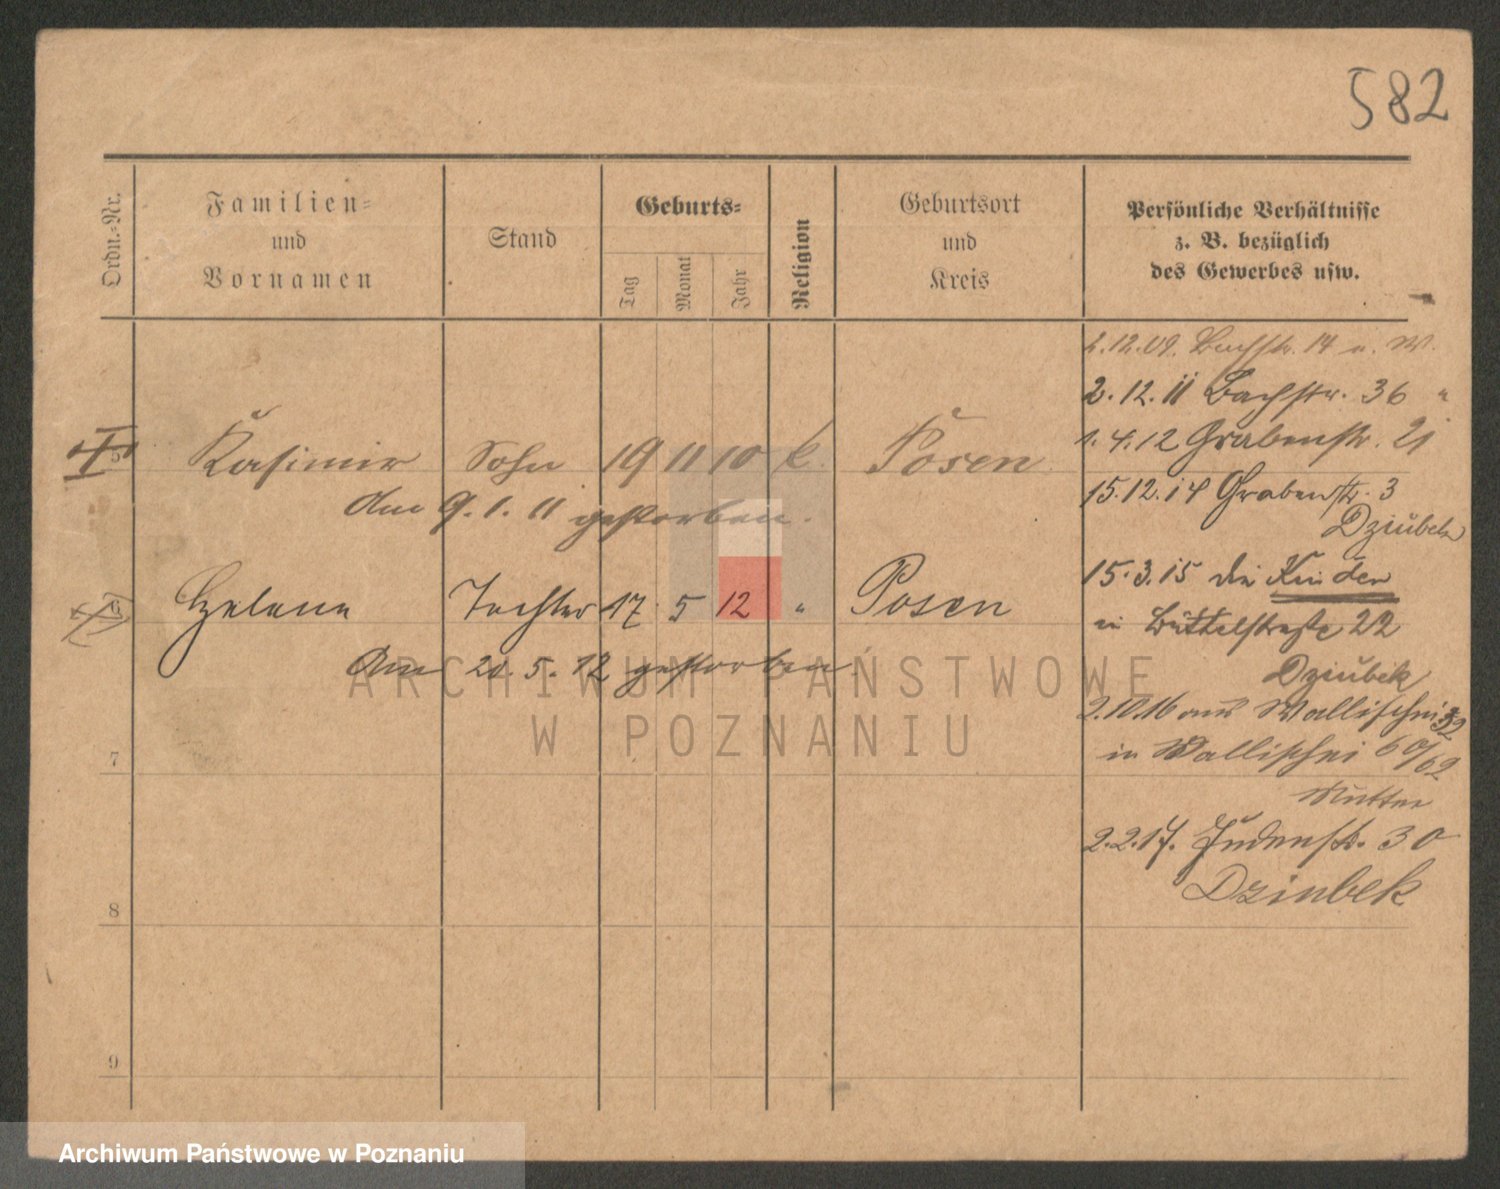 582
Ordn.-Nr.
Familien-
und
Vornamen
Stand
Geburts-
Tag
Monat
Jahr
Religion
Geburtsort
und
Kreis
Persönliche Verhältnisse
z. B. bezüglich
des Gewerbes usw.
2.12.09. Bachstr. 14 u. W.
2.12.11 Bachstr. 36 "
1.4.12 Grabenstr. 21
5 Kasimir Sohn 19 11 10 k. Posen
15.12.14 Grabenstr. 3
am 9.1.11 gestorben.
Dziubek
15.3.15 die Kinder
6 Helena Tochter 17 5 12 " Posen
in Büttelstraße 22
Am 20.5.12 gestorben.
Dziubek
ARCHIWUM PAŃSTWOWE
2.10.16 aus Wallischei 32
W POZNANIU
in Wallischei 60/62
7
Mutter
2.2.17. Judenstr. 30
Dziubek
8
9
Archiwum Państwowe w Poznaniu